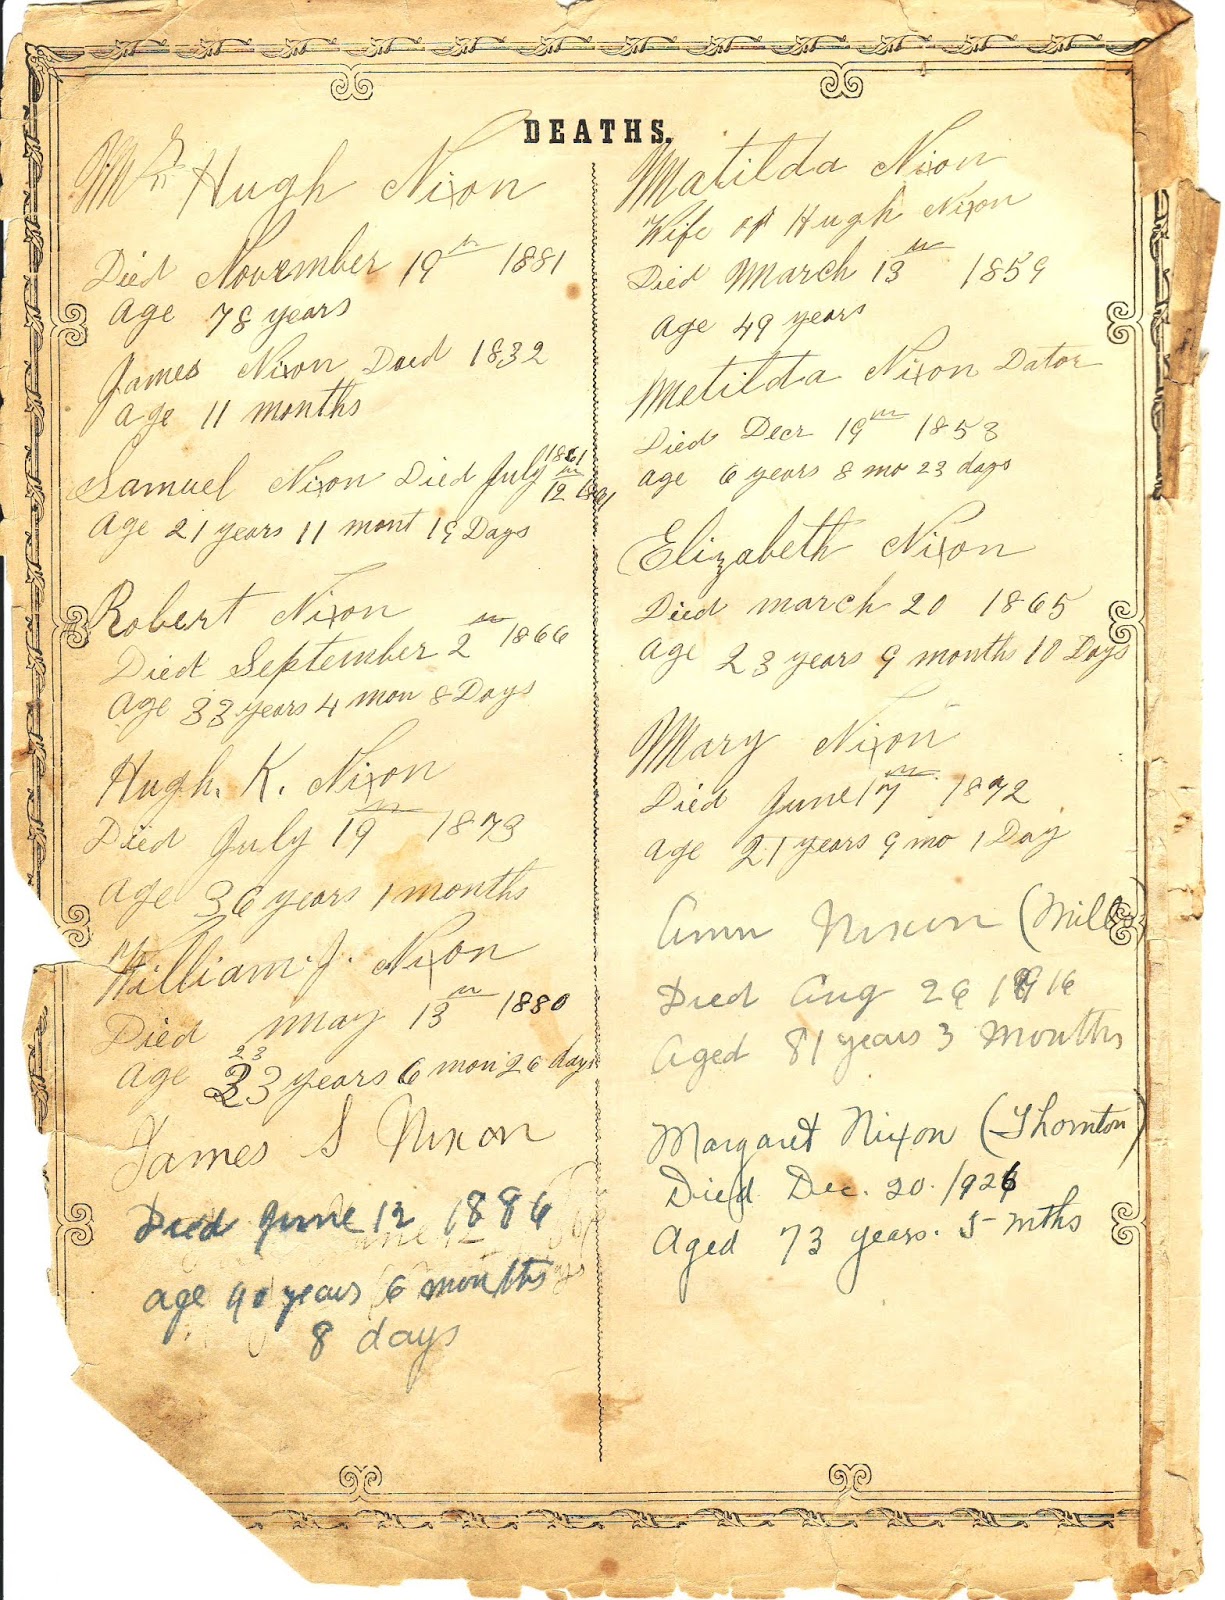 DEATHS.
Mr Hugh Nixon
Died November 19th 1881
age 78 years
James Nixon Died 1832
age 11 months
Samuel Nixon Died July 12th 1861
age 21 years 11 mont 19 Days
Robert Nixon
Died September 2th 1866
age 33 years 4 mon 8 Days
Hugh. K. Nixon
Died July 19th 1873
age 36 years 1 months
William. J. Nixon
Died May 13th 1880
23
age 33 years 6 mon 26 days
James S Nixon
Died June 12 1886
age 40 years 6 months
8 days
Matilda Nixon
Wife of Hugh Nixon
Died March 13th 1859
age 49 years
Metilda Nixon Dator
Died Decr 19th 1853
age 6 years 8 mo 23 days
Elizabeth Nixon
Died march 20 1865
age 23 years 9 months 10 Days
Mary Nixon
Died June 17th 1872
age 21 years 9 mo 1 Day
Ann Nixon
Died Aug 26 1916
Aged 81 years 3 months
Margaret Nixon (Thornton)
Died Dec. 20. 1926
Aged 73 years. 5 mths